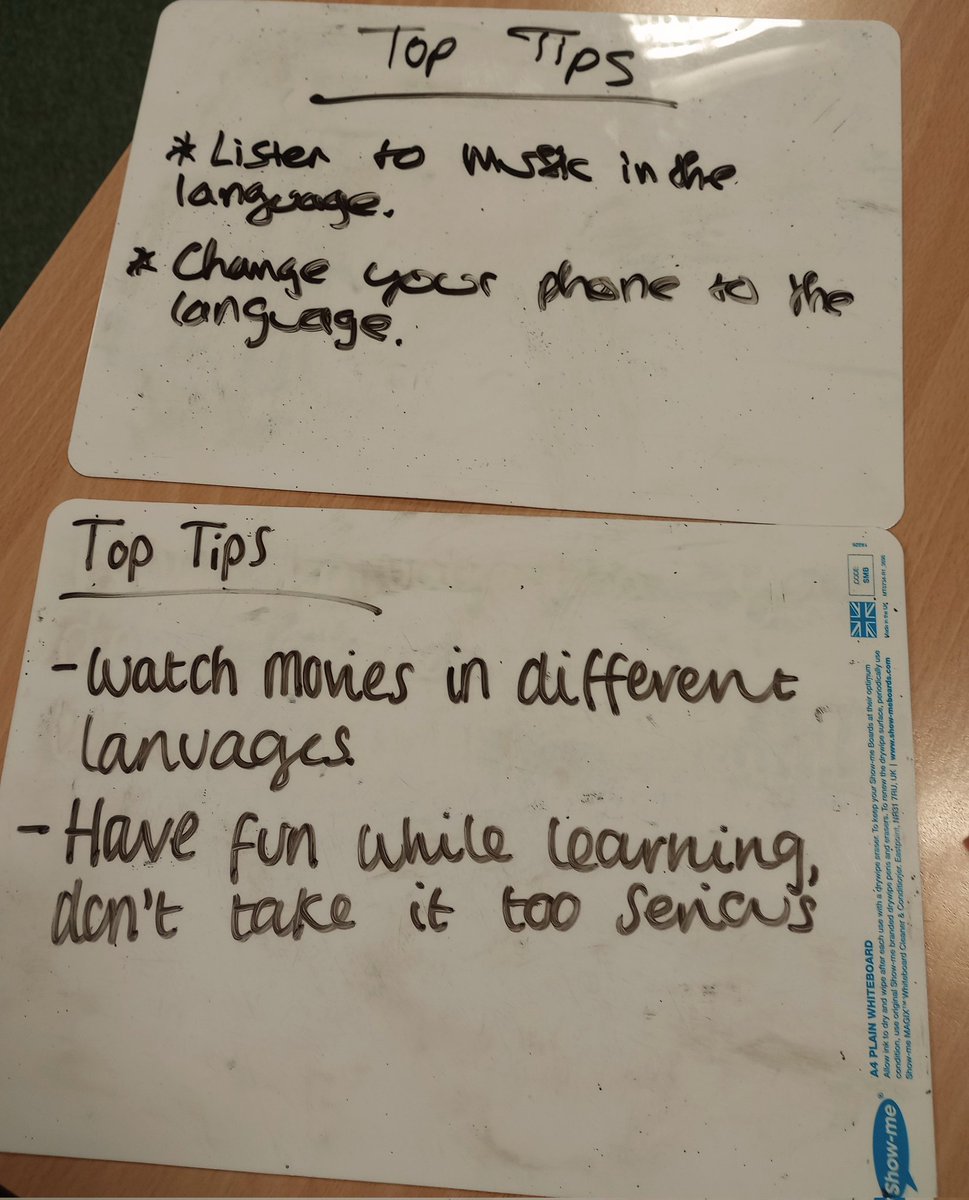 Top Tips
* Listen to music in the
language.
* Change your phone to the
language.
Top Tips
- Watch movies in different
lanuages
- Have fun while learning,
don't take it too serious
CODE:
SMB
Made in the UK
A4 PLAIN WHITEBOARD
Allow ink to dry and wipe after each use with a drywipe eraser. To keep your Show-me Boards at their optimum
condition, use original Show-me branded drywipe pens and erasers. To renew the drywipe surface, periodically use
Show-me MAGIX™ Whiteboard Cleaner & Conditioner. Eastpoint, NR31 7RU, UK | www.show-meboards.com
Show-me®